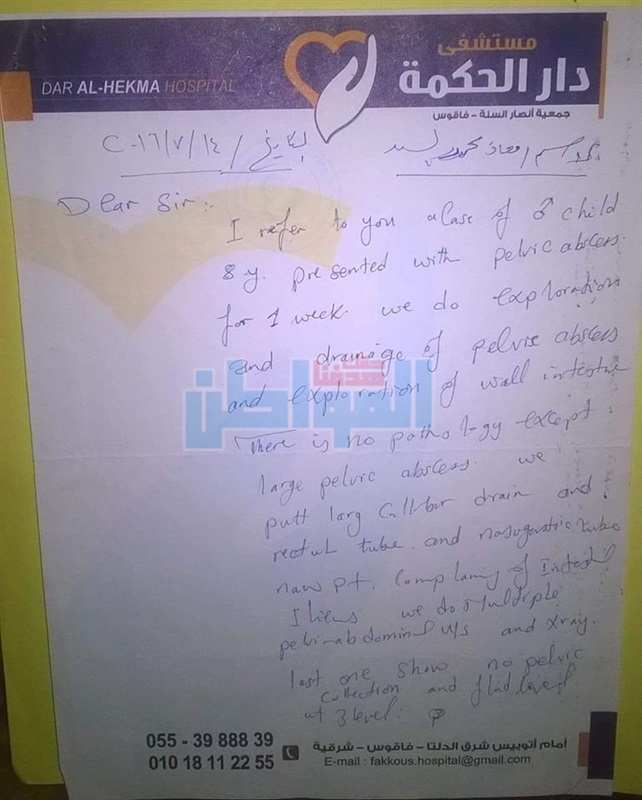 DAR AL-HEKMA HOSPITAL
مستشفى
دار الحكمة
جمعية أنصار السنة - فاقوس
التاريخ / ١٤/٧/٢٠١٦
الاسم / معاذ محمد السيد
Dear Sir:-
I refer to you a case of ♂ child
8 y. presented with pelvic abscess
for 1 week. we do exploration
and drainage of pelvic abscess
and exploration of wall intestine
There is no pathology except:
large pelvic abscess. we
putt larg caliber drain and
rectal tube. and nasogastric tube
naw pt. complaning of
Ilieus. we do multiple
pelvi-abdominal U/s and Xray.
last one show no pelvic
collection and fluid level
at 3 level.
المواطن
055 - 39 888 39
010 18 11 22 55
أمام أتوبيس شرق الدلتا - فاقوس - شرقية
E-mail : fakkous.hospital@gmail.com